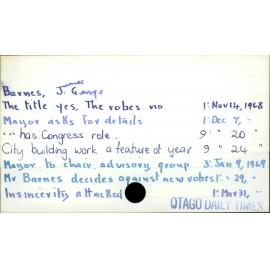 James
Barnes, J. George
The title yes, The robes no 1: Nov 14, 1968
Mayor asks for details 1: Dec 7, -
" " has Congress role. 9: " 20 "
City building work a feature of year 9 " 24 "
Mayor to chair advisory group 3: Jan 9, 1969
Mr Barnes decides against new robes 1: - 29, "
Insincerity attacked 1: Mar 31, "
OTAGO DAILY TIMES